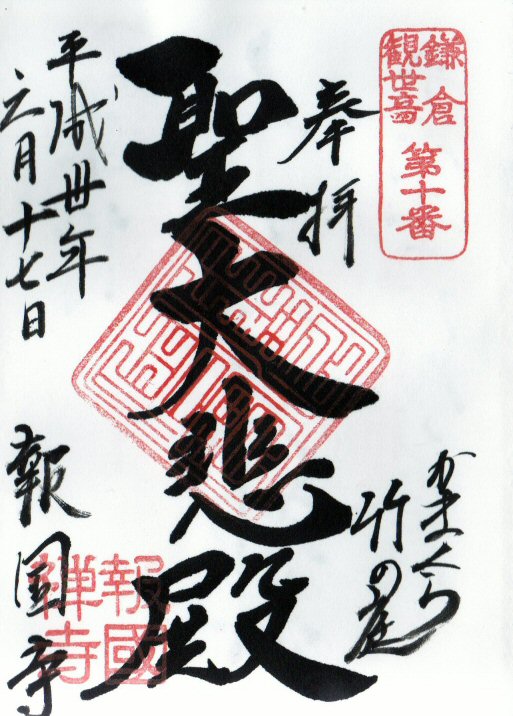 鎌倉
観世音
第十番
奉拝
かまくら
竹の庭
聖大悲殿
平成卅年
六月十七日
報国寺
報國
禅寺